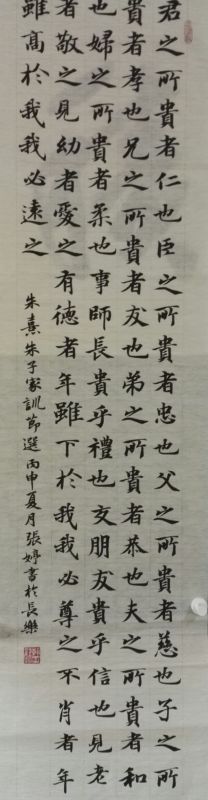 君之所貴者仁也臣之所貴者忠也父之所貴者慈也子之所
貴者孝也兄之所貴者友也弟之所貴者恭也夫之所貴者和
也婦之所貴者柔也事師長貴乎禮也交朋友貴乎信也見老
者敬之見幼者愛之有德者年雖下於我我必尊之不肖者年
雖高於我我必遠之
朱熹朱子家訓節選丙申夏月張婷書於長樂